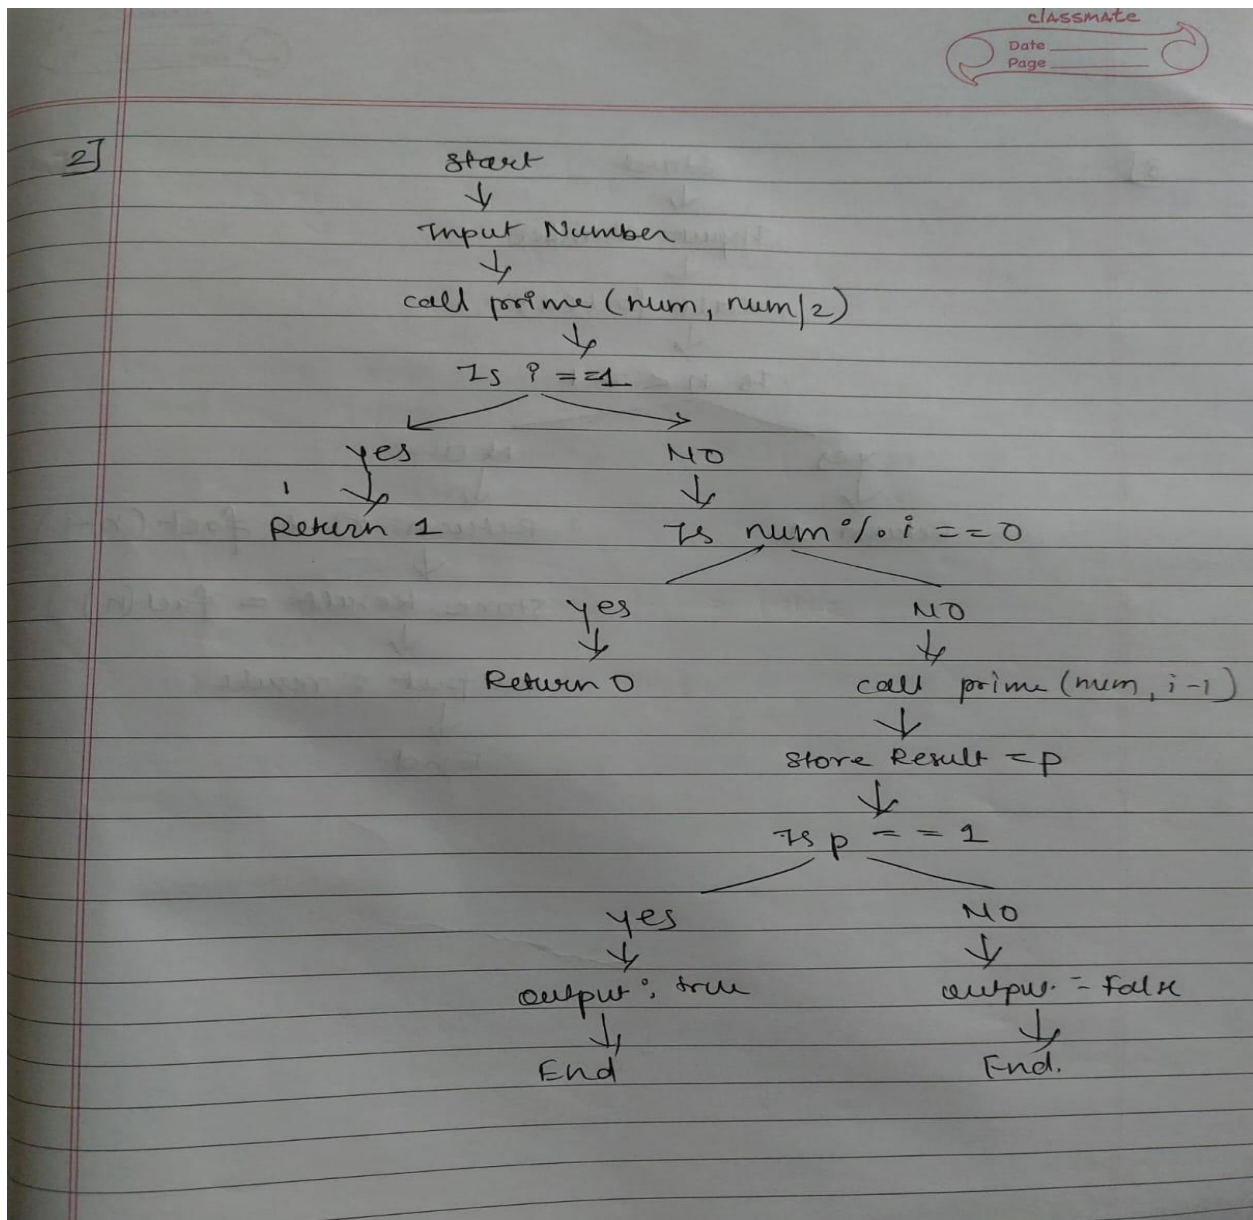 classmate
Date
Page
2]
Start
Input Number
call prime (num, num/2)
Is i == 1
yes NO
Return 1 Is num % i == 0
yes NO
Return 0 call prime (num, i-1)
Store Result = p
Is p == 1
yes NO
output : true output = False
End End.